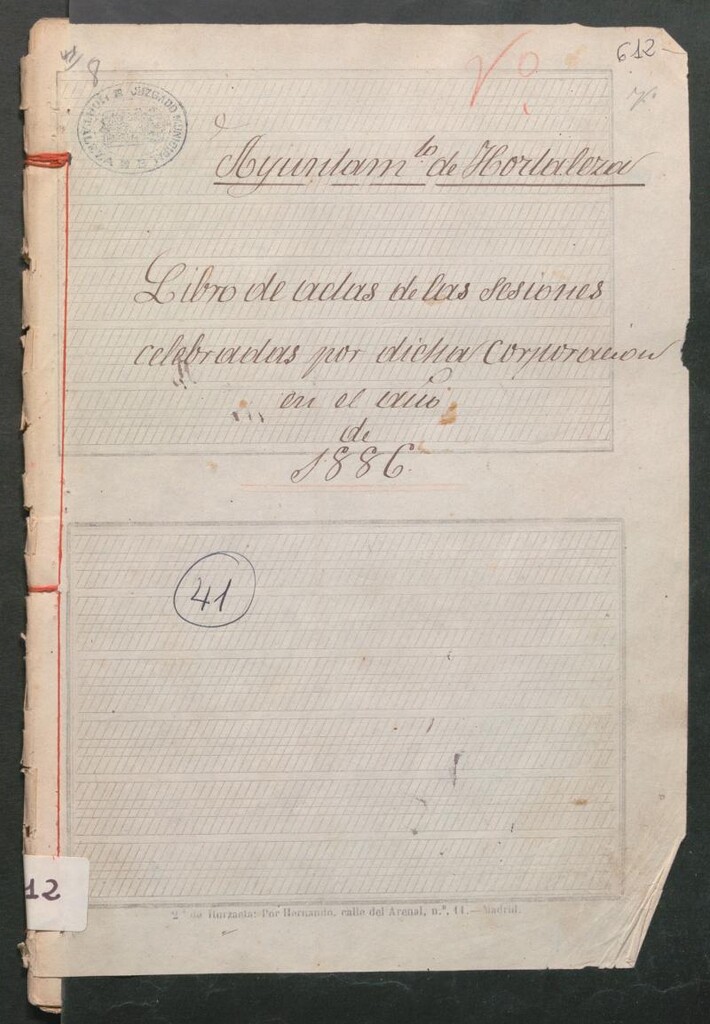 612-
8
JUZGADO MUNICIPAL
Vº
Ayuntam.to de Hortaleza
Libro de actas de las sesiones
celebradas por dicha Corporacion
en el año
de
1886.
41
12
2ª de Iturzaeta: Por Hernando, calle del Arenal, n.º, 11.—Madrid.